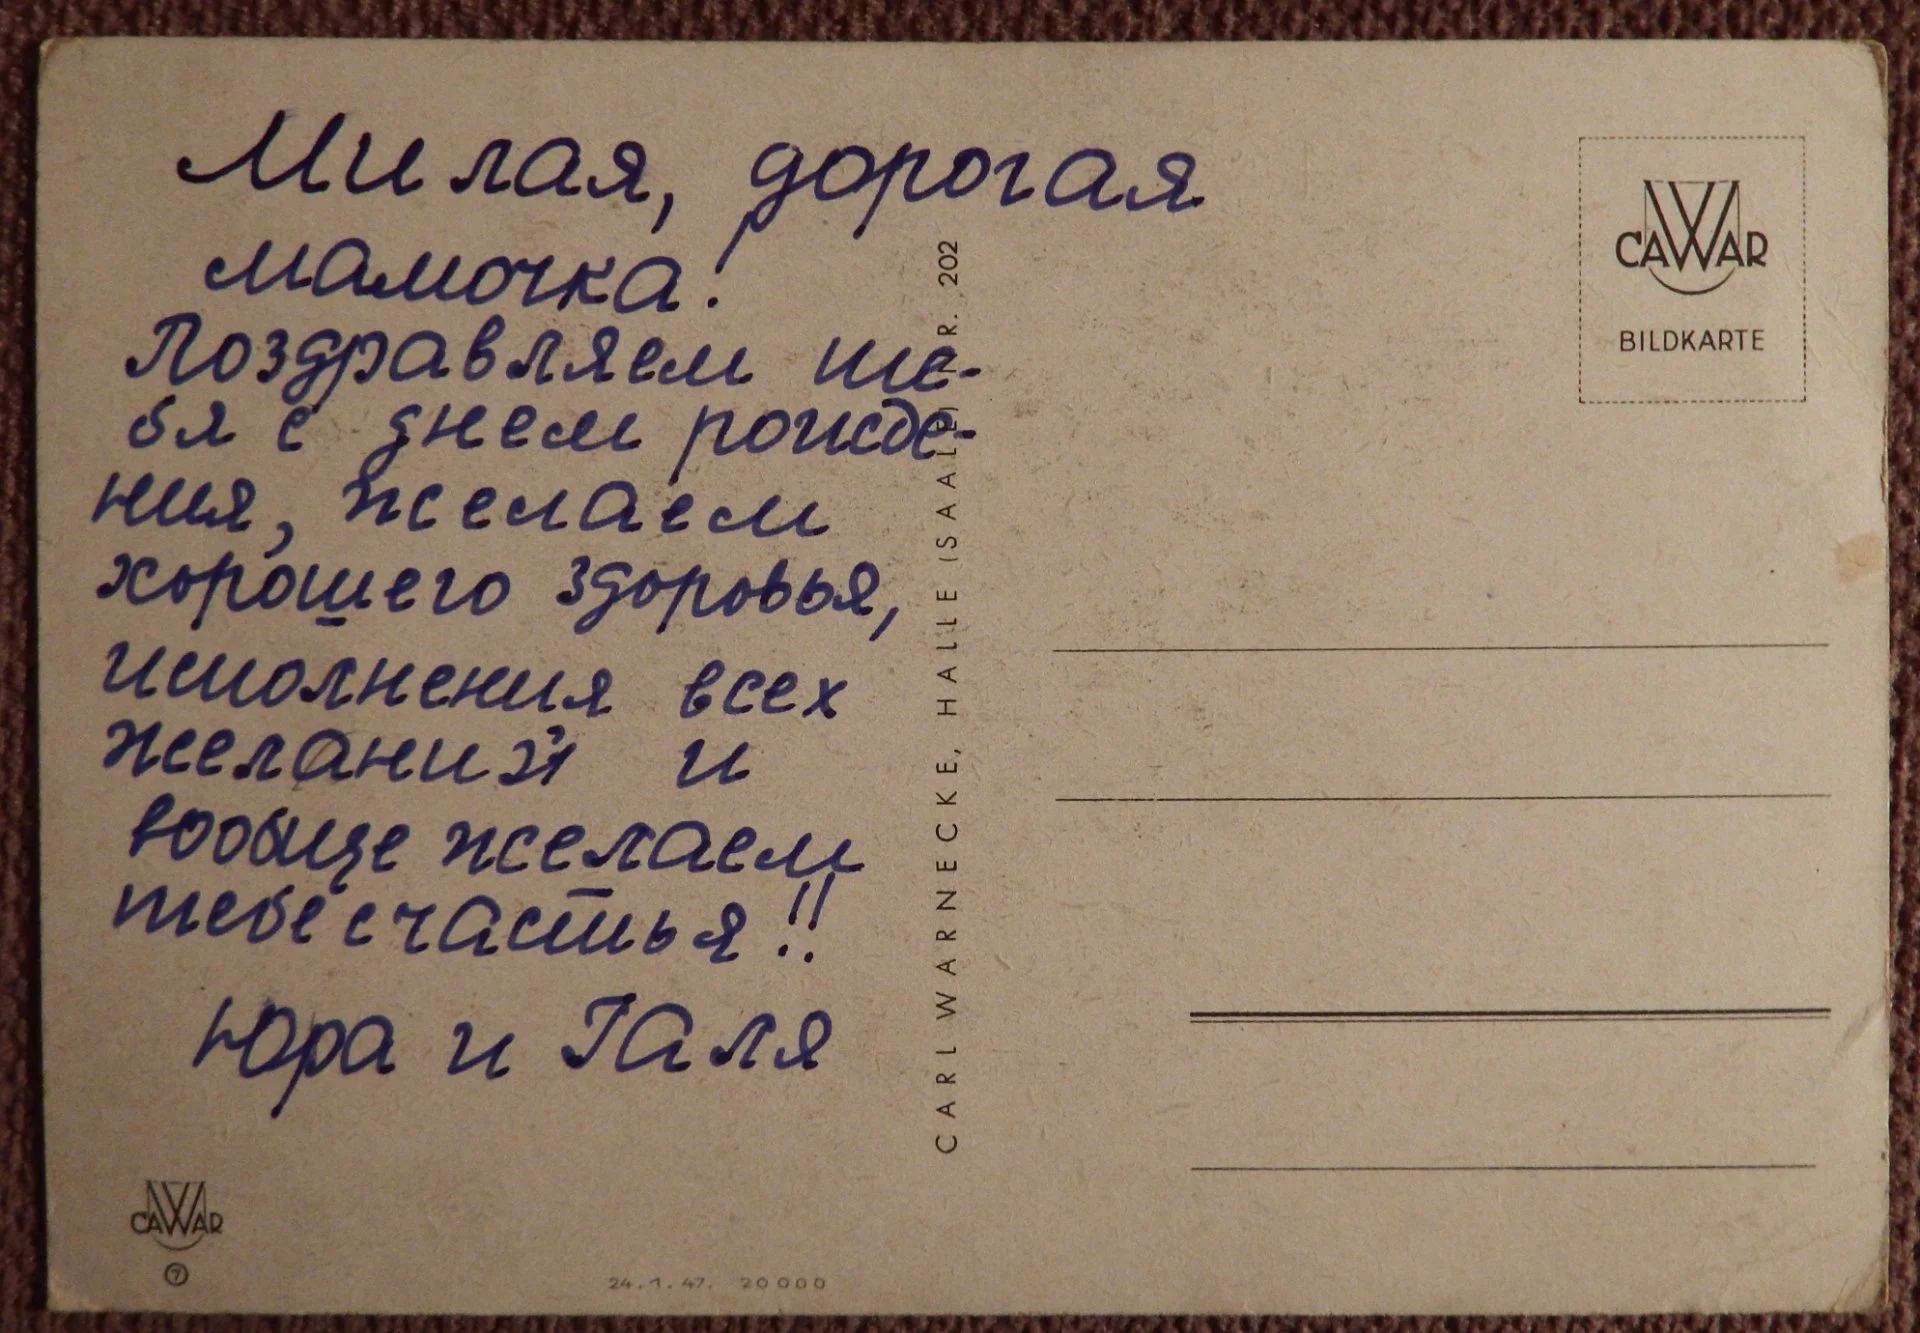 Милая, дорогая
мамочка!
Поздравляем те-
бя с днем рожде-
ния, желаем
хорошего здоровья,
исполнения всех
желаний и
вообще желаем
тебе счастья!!
Юра и Галя
CAWAR
7
24.1.47. 20000
CARL WARNECKE, HALLE (SAALE) NR. 202
CAWAR
BILDKARTE